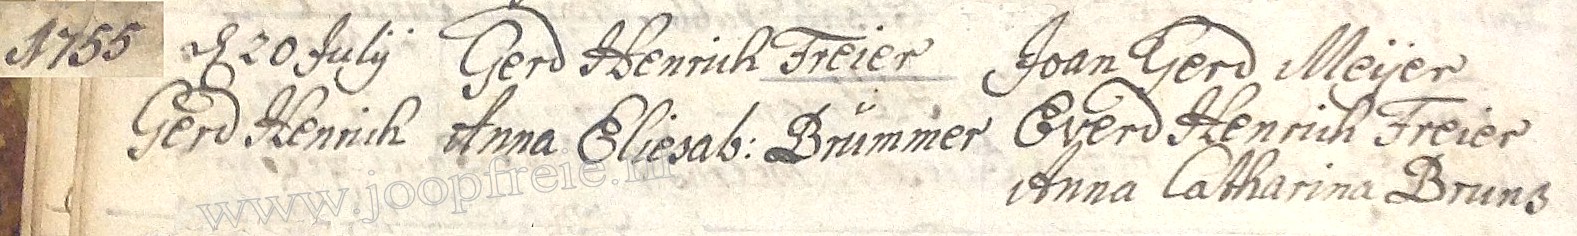 1755 d 20 Julij Gerd Henrich Freier Joan Gerd Meijer
Gerd Henrich Anna Eliesab: Brümmer Everd Henrich Freier
Anna Catharina Bruns
www.joopfreie.nl